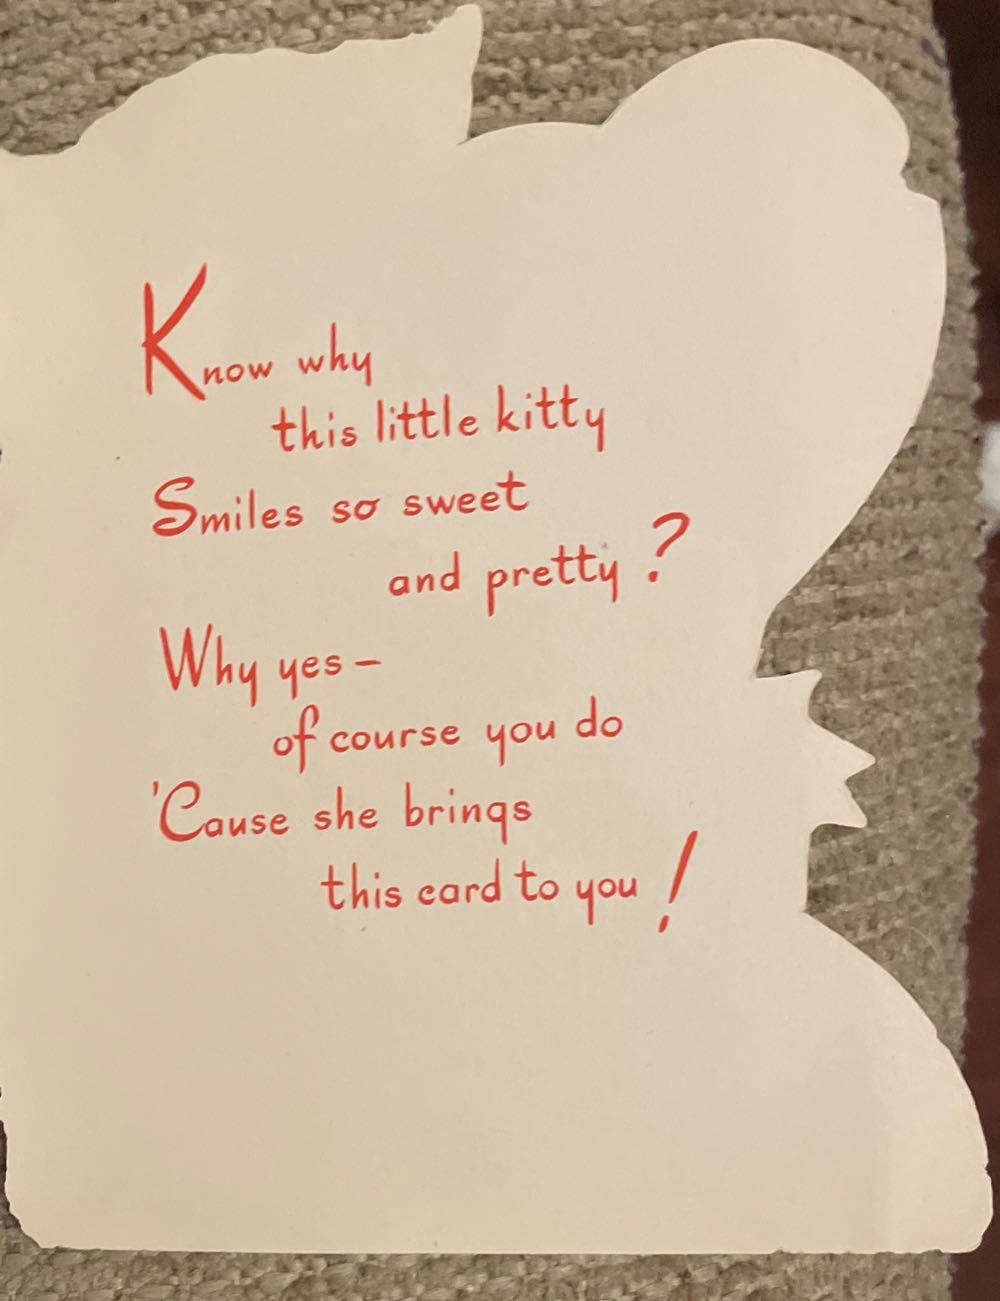 Know why
this little kitty
Smiles so sweet
and pretty?
Why yes –
of course you do
'Cause she brings
this card to you!